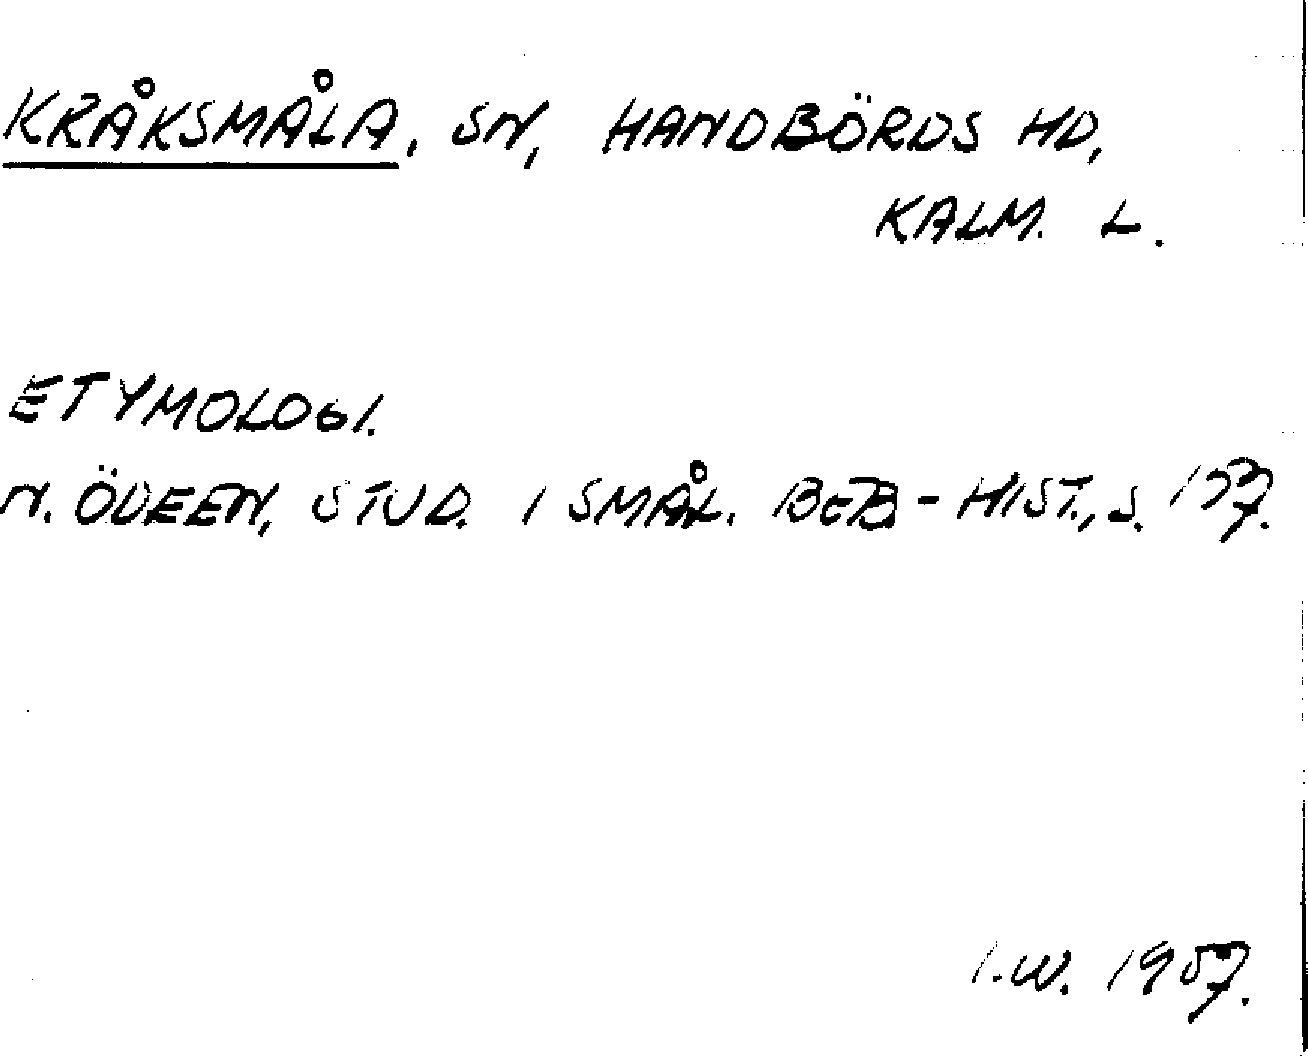 KRÅKSMÅLA, SN, HANDBÖRDS HD,
KALM. L.
ETYMOLOGI.
N. ÖDEEN, STUD. I SMÅL. BEB-HIST., S. 137.
I.W. 1957.